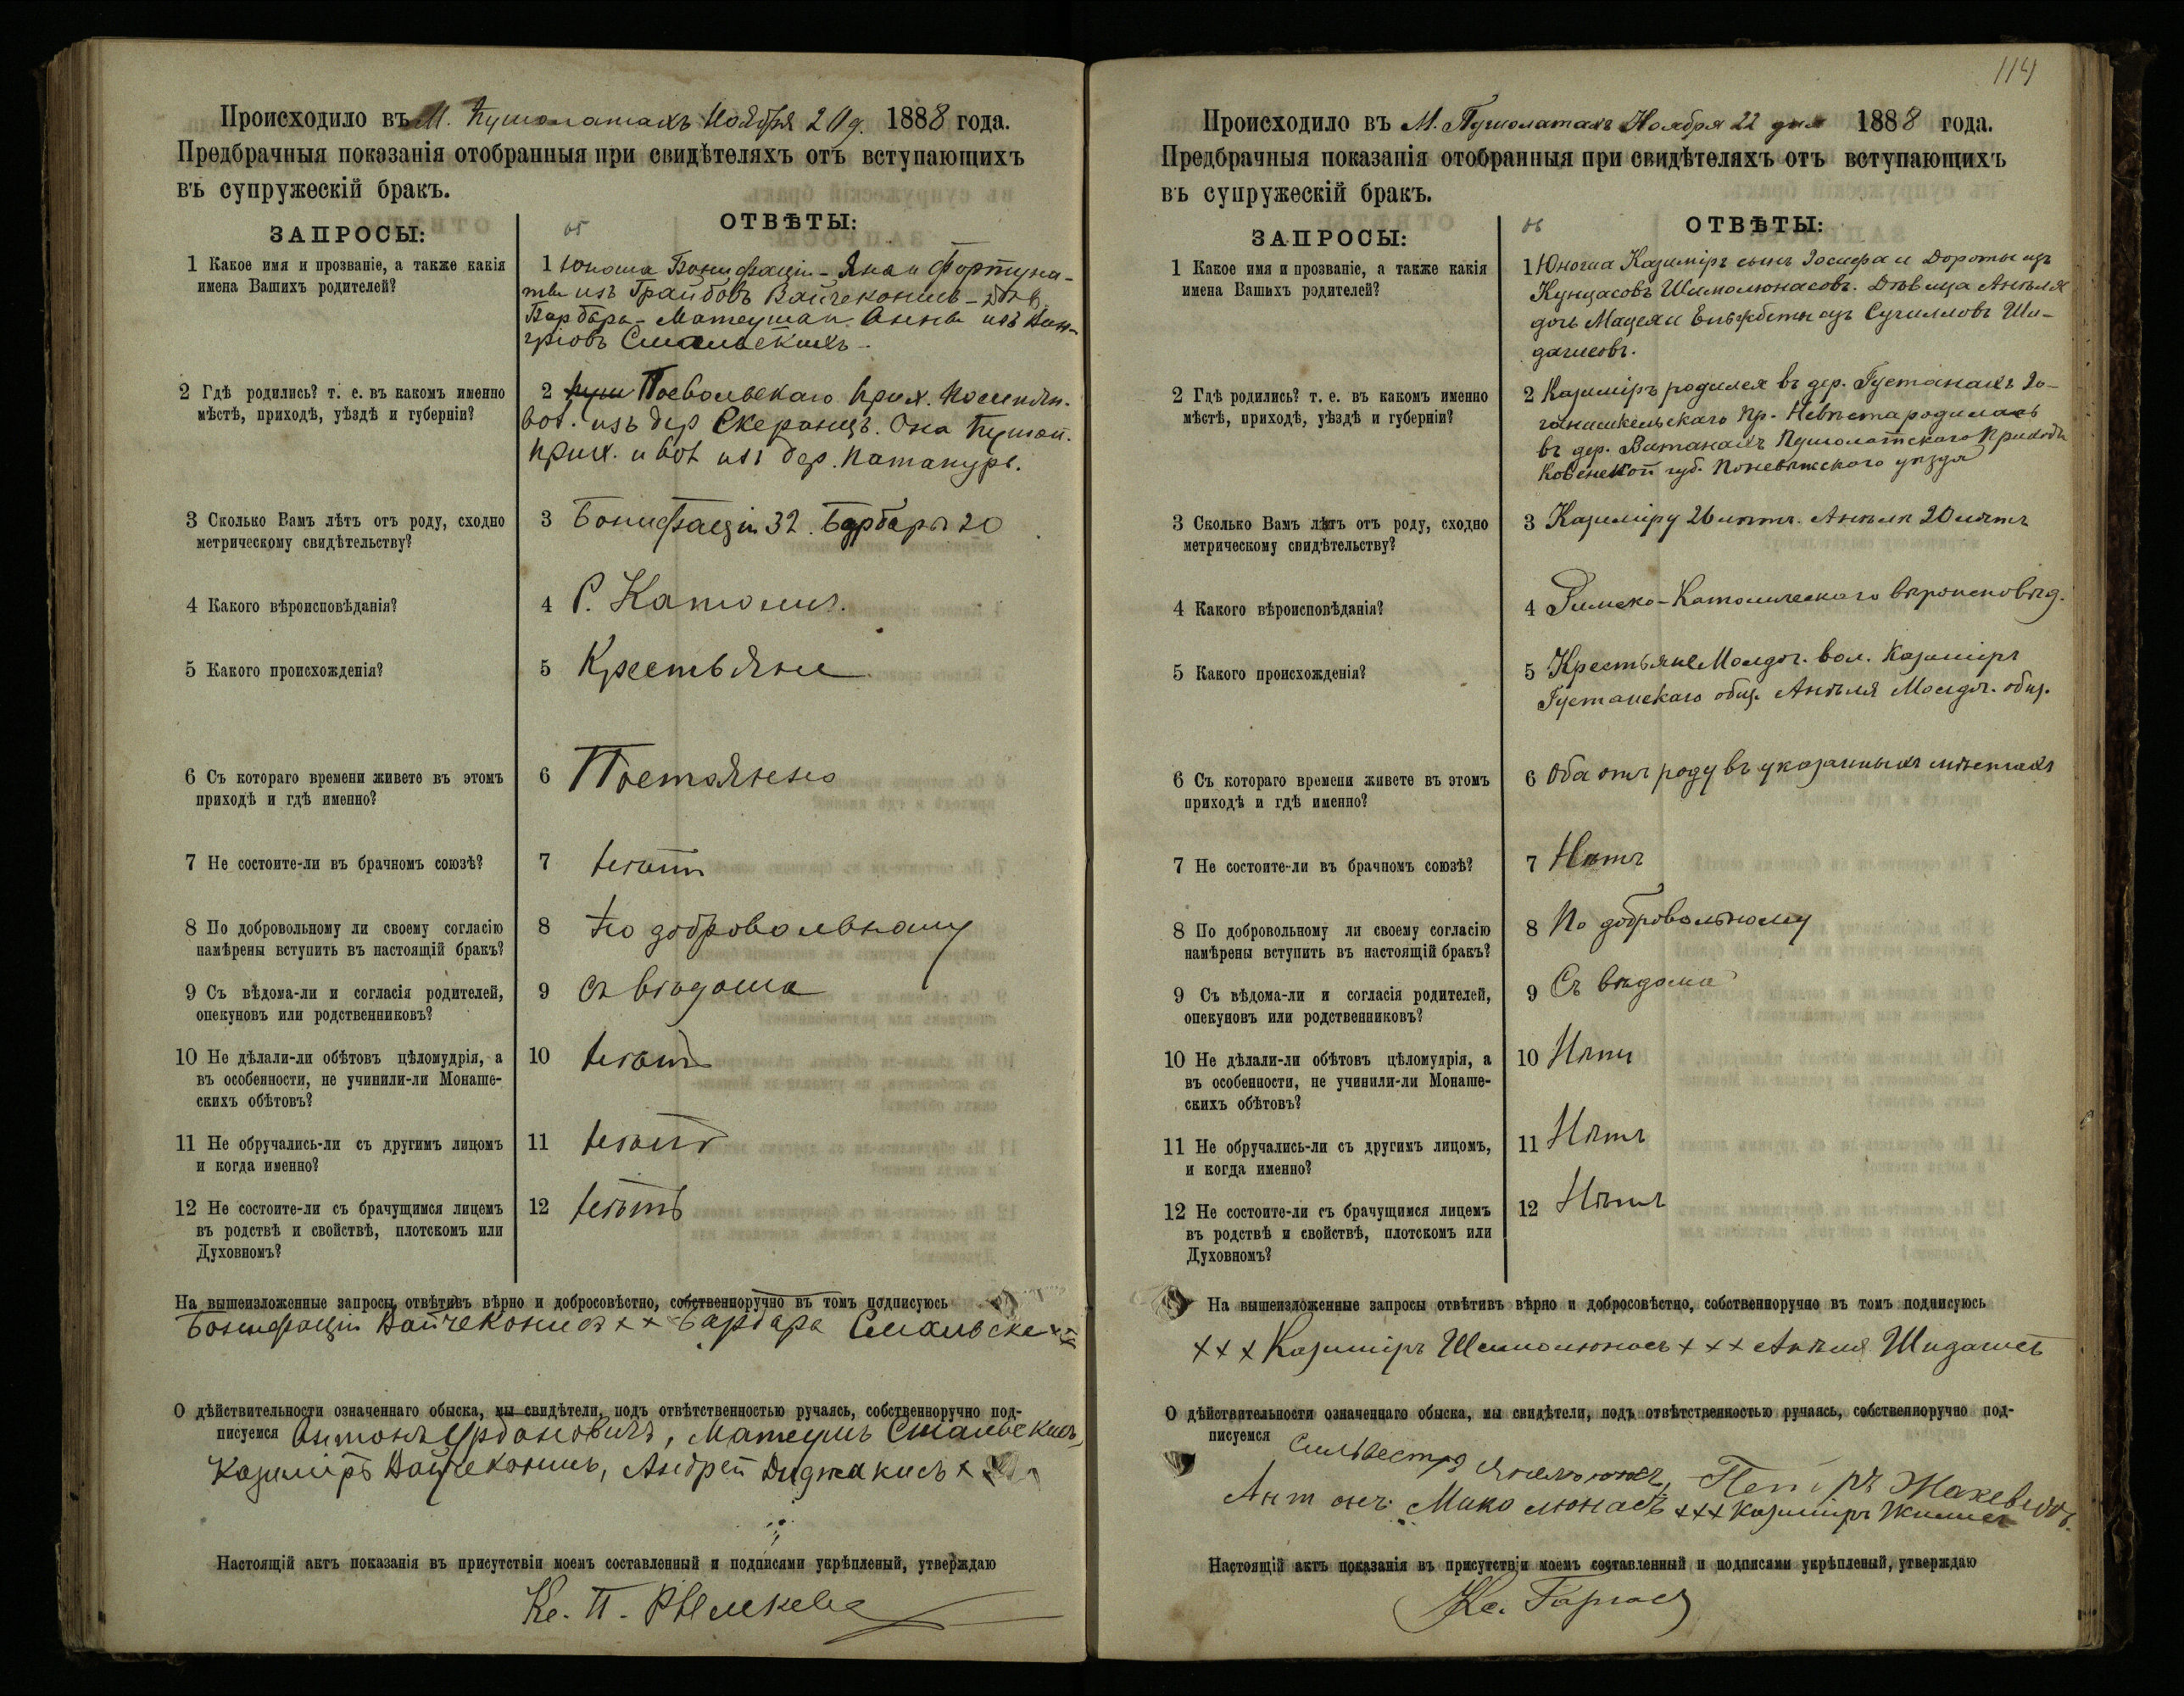 Происходило въ М. Пушолатахъ Ноября 20 д. 1888 года.
Предбрачныя показанія отобранныя при свидѣтеляхъ отъ вступающихъ
въ супружескій бракъ.
ЗАПРОСЫ:
65
ОТВѢТЫ:
1 Какое имя и прозваніе, а также какія
имена Вашихъ родителей?
1 Юноша Бонифацій - Яна и Фортуна-
ты изъ Грайбовъ Вайчеконисъ - дѣв.
Барбара - Матеуша и Анны изъ
Смальскихъ -
2 Гдѣ родились? т. е. въ какомъ именно
мѣстѣ, приходѣ, уѣздѣ и губерніи?
2 Посвольскаго прих.
вол. изъ дер. Она Пушол.
прих. и вол изъ дер.
3 Сколько Вамъ лѣтъ отъ роду, сходно
метрическому свидѣтельству?
3 Бонифацій 32. Барбара 20
4 Какого вѣроисповѣданія?
4 Р. Католич.
5 Какого происхожденія?
5 Крестьяне
6 Съ котораго времени живете въ этомъ
приходѣ и гдѣ именно?
6 Постоянно
7 Не состоите-ли въ брачномъ союзѣ?
7 Нѣтъ
8 По добровольному ли своему согласію
намѣрены вступить въ настоящій бракъ?
8 По добровольному
9 Съ вѣдома-ли и согласія родителей,
опекуновъ или родственниковъ?
9 Съ вѣдома
10 Не дѣлали-ли обѣтовъ цѣломудрія, а
въ особенности, не учинили-ли Монаше-
скихъ обѣтовъ?
10 Нѣтъ
11 Не обручались-ли съ другимъ лицомъ
и когда именно?
11 Нѣтъ
12 Не состоите-ли съ брачущимся лицемъ
въ родствѣ и свойствѣ, плотскомъ или
Духовномъ?
12 Нѣтъ
На вышеизложенные запросы отвѣтивъ вѣрно и добросовѣстно, собственноручно въ томъ подписуюсь
Бонифацій Вайчеконисъ x x Барбара
О дѣйствительности означеннаго обыска, мы свидѣтели, подъ отвѣтственностью ручаясь, собственноручно под-
писуемся Антонъ Урбановичъ, Матеушъ Смальскисъ,
Казиміръ Вайчеконисъ, Андрей Диджакисъ x x
Настоящій актъ показанія въ присутствіи моемъ составленный и подписями укрѣпленый, утверждаю
Кс. П.
114
Происходило въ М. Пушолатахъ Ноября 22 дня 1888 года.
Предбрачныя показанія отобранныя при свидѣтеляхъ отъ вступающихъ
въ супружескій бракъ.
ЗАПРОСЫ:
66
ОТВѢТЫ:
1 Какое имя и прозваніе, а также какія
имена Вашихъ родителей?
1 Юноша Казиміръ сынъ Іосифа и Дороты изъ
Кунцасовъ Шимолюнасовъ. Дѣвица Анѣля
дочь Мацея и Ельжбеты изъ Сучилловъ Ши-
дагисовъ.
2 Гдѣ родились? т. е. въ какомъ именно
мѣстѣ, приходѣ, уѣздѣ и губерніи?
2 Казиміръ родился въ дер. Густанахъ Іо-
ганишкельскаго пр. Невѣста родилась
въ дер. Витанахъ Пушолатскаго прихода
Ковенской губ. Поневѣжскаго уѣзда
3 Сколько Вамъ лѣтъ отъ роду, сходно
метрическому свидѣтельству?
3 Казиміру 26 лѣтъ. Анѣли 20 лѣтъ
4 Какого вѣроисповѣданія?
4 Римско-Католическаго вѣроисповѣд.
5 Какого происхожденія?
5 Крестьяне вол. Казиміръ
Густанскаго общ. Анѣля общ.
6 Съ котораго времени живете въ этомъ
приходѣ и гдѣ именно?
6 Оба отъ роду въ указанныхъ мѣстахъ
7 Не состоите-ли въ брачномъ союзѣ?
7 Нѣтъ
8 По добровольному ли своему согласію
намѣрены вступить въ настоящій бракъ?
8 По добровольному
9 Съ вѣдома-ли и согласія родителей,
опекуновъ или родственниковъ?
9 Съ вѣдома
10 Не дѣлали-ли обѣтовъ цѣломудрія, а
въ особенности, не учинили-ли Монаше-
скихъ обѣтовъ?
10 Нѣтъ
11 Не обручались-ли съ другимъ лицомъ,
и когда именно?
11 Нѣтъ
12 Не состоите-ли съ брачущимся лицемъ
въ родствѣ и свойствѣ, плотскомъ или
Духовномъ?
12 Нѣтъ
На вышеизложенные запросы отвѣтивъ вѣрно и добросовѣстно, собственноручно въ томъ подписуюсь
x x x Казиміръ Шимолюнасъ x x x Анѣля
О дѣйствительности означеннаго обыска, мы свидѣтели, подъ отвѣтственностью ручаясь, собственноручно под-
писуемся Сильвестръ Петръ
Антонъ Миколюнасъ x x x Казиміръ
Настоящій актъ показанія въ присутствіи моемъ составленный и подписями укрѣпленый, утверждаю
Кс.